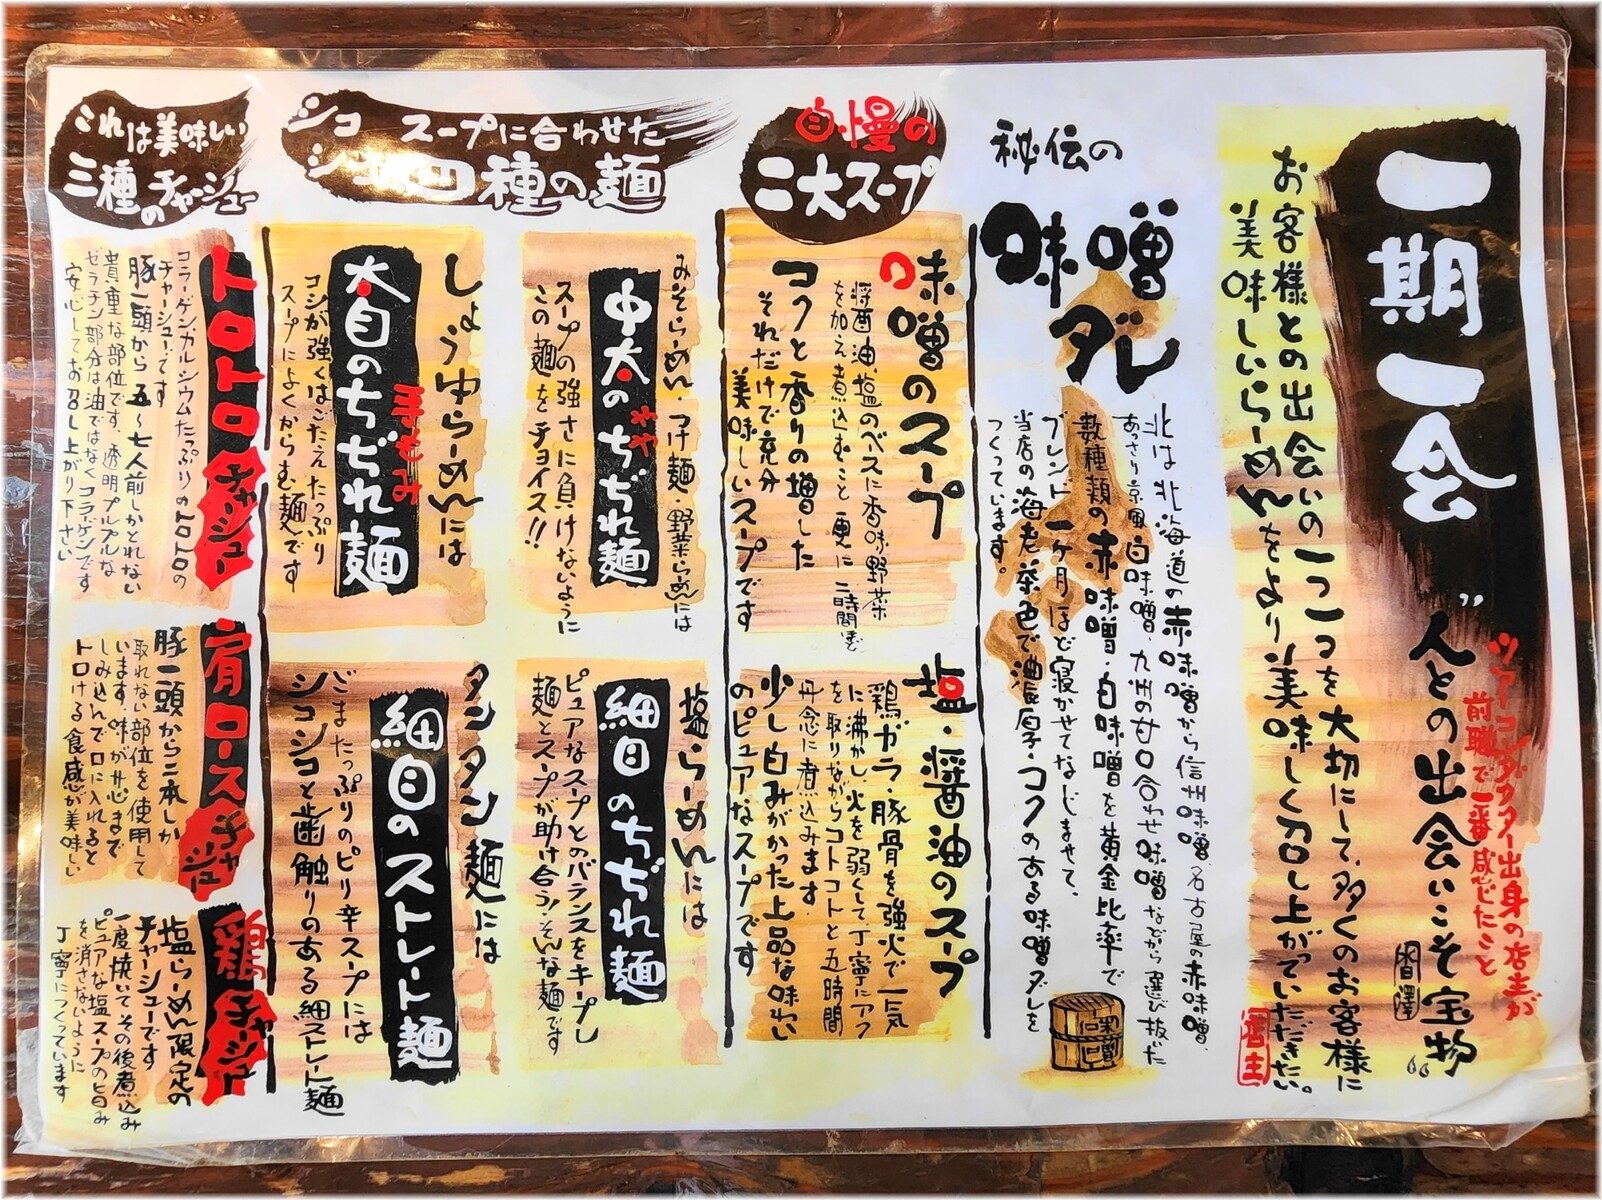 一期一会
ツアーコンダクター出身の店主が
前職で一番感じたこと
〝人との出会いこそ宝物〟
お客様との出会いの一つ一つを大切にして、多くのお客様に
美味しいらーめんをより美味しく召し上がっていただきたい。
店主
秘伝の
味噌ダレ
北は北海道の赤味噌から信州味噌、名古屋の赤味噌、
あっさり京風白味噌、九州の甘口合わせ味噌などから選び抜いた
数種類の赤味噌・白味噌を黄金比率で
ブレンド一ヶ月ほど寝かせてなじませて、
当店の海老茶色で濃厚・コクのある味噌ダレを
つくっています。
味噌
自慢の
二大スープ
味噌のスープ
醤油、塩のベースに香味野菜
を加え煮込むこと更に二時間まで
コクと香りの増した
それだけで充分
美味しいスープです
塩・醤油のスープ
鶏ガラ・豚骨を強火で一気
に沸かし、火を弱くして、丁寧にアク
を取りながらコトコトと五時間
丹念に煮込みます。
少し白みがかった上品な味わい
のピュアなスープです
シコシコ
スープに合わせた
四種の麺
みそらーめん・つけ麺・野菜らーめんには
中太のややちぢれ麺
スープの強さに負けないように
この麺をチョイス!!
塩らーめんには
細目のちぢれ麺
ピュアなスープとのバランスをキープし
麺とスープが助け合う!そんな麺です
しょうゆらーめんには
太目の手もみちぢれ麺
コシが強くはごたえたっぷり
スープによくからむ麺です
タンタン麺には
細目のストレート麺
ごまたっぷりのピリ辛スープには
シコシコと歯触りのある細ストレート麺
これは美味しい
三種のチャーシュー
トロトロチャーシュー
コラーゲンカルシウムたっぷりのトロトロの
チャーシューです
豚一頭から五〜七人前しかとれない
貴重な部位です、透明プルプルな
ゼラチン部分は油ではなくコラーゲンです
安心してお召し上がり下さい
肩ロースチャーシュー
豚一頭から二本しか
取れない部位を使用して
います。味が中心まで
しみ込んで口に入れると
トロける食感が美味しい
鶏チャーシュー
塩らーめん限定の
チャーシューです
一度焼いてその後煮込み
ピュアな塩スープの旨み
を消さないように
丁寧につくっています